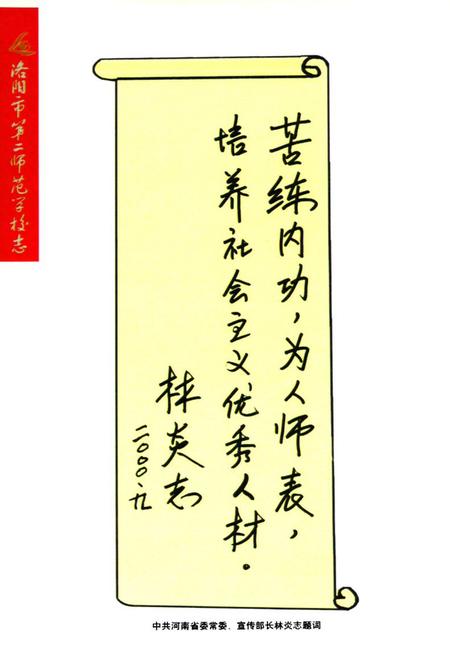 洛阳市第二师范学校志
苦练内功，为人师表，
培养社会主义优秀人材。
林炎志
二〇〇〇、九
中共河南省委常委、宣传部长林炎志题词